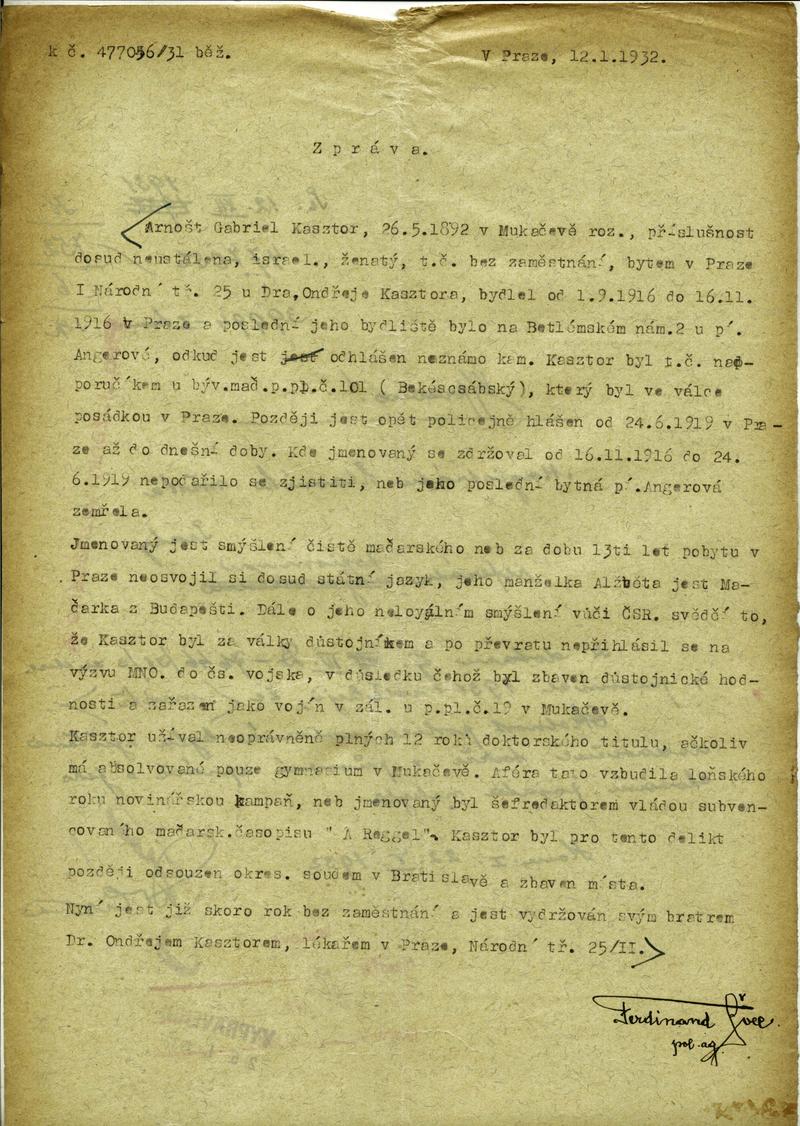 k č. 477056/31 běž.
V Praze, 12.1.1932.
Z p r á v a.
Arnošt Gabriel Kasztor, 26.5.1892 v Mukačevě roz., příslušnost
dosud neustálena, israel., ženatý, t.č. bez zaměstnání, bytem v Praze
I Národní tř. 25 u Dra,Ondřeje Kasztora, bydlel od 1.9.1916 do 16.11.
1916 v Praze a poslední jeho bydliště bylo na Betlémském nám.2 u pí.
Angerové, odkud jest jest odhlášen neznámo kam. Kasztor byl t.č. nad-
poručíkem u býv.maď.p.pl.č.101 ( Bekéscsábský), který byl ve válce
posádkou v Praze. Později jest opět policejně hlášen od 24.6.1919 v Pra-
ze až do dnešní doby. Kde jmenovaný se zdržoval od 16.11.1916 do 24.
6.1919 nepodařilo se zjistiti, neb jeho poslední bytná pí.Angerová
zemřela.
Jmenovaný jest smýšlení čistě maďarského neb za dobu 13ti let pobytu v
Praze neosvojil si dosud státní jazyk, jeho manželka Alžběta jest Ma-
ďarka z Budapešti. Dále o jeho neloyálním smýšlení vůči ČSR. svědčí to,
že Kasztor byl za války důstojníkem a po převratu nepřihlásil se na
výzvu MNO. do čs. vojska, v důsledku čehož byl zbaven důstojnické hod-
nosti a zařazen jako vojín v zál. u p.pl.č.19 v Mukačevě.
Kasztor užíval neoprávněně plných 12 roků doktorského titulu, ačkoliv
má absolvované pouze gymnasium v Mukačevě. Aféra tato vzbudila loňského
roku novinářskou kampaň, neb jmenovaný byl šefredaktorem vládou subven-
covaného maďarsk.časopisu " A Reggel". Kasztor byl pro tento delikt
později odsouzen okres. soudem v Bratislavě a zbaven místa.
Nyní jest již skoro rok bez zaměstnání a jest vydržován svým bratrem
Dr. Ondřejem Kasztorem, lékařem v Praze, Národní tř. 25/II.
Ferdinand
pol. ag.